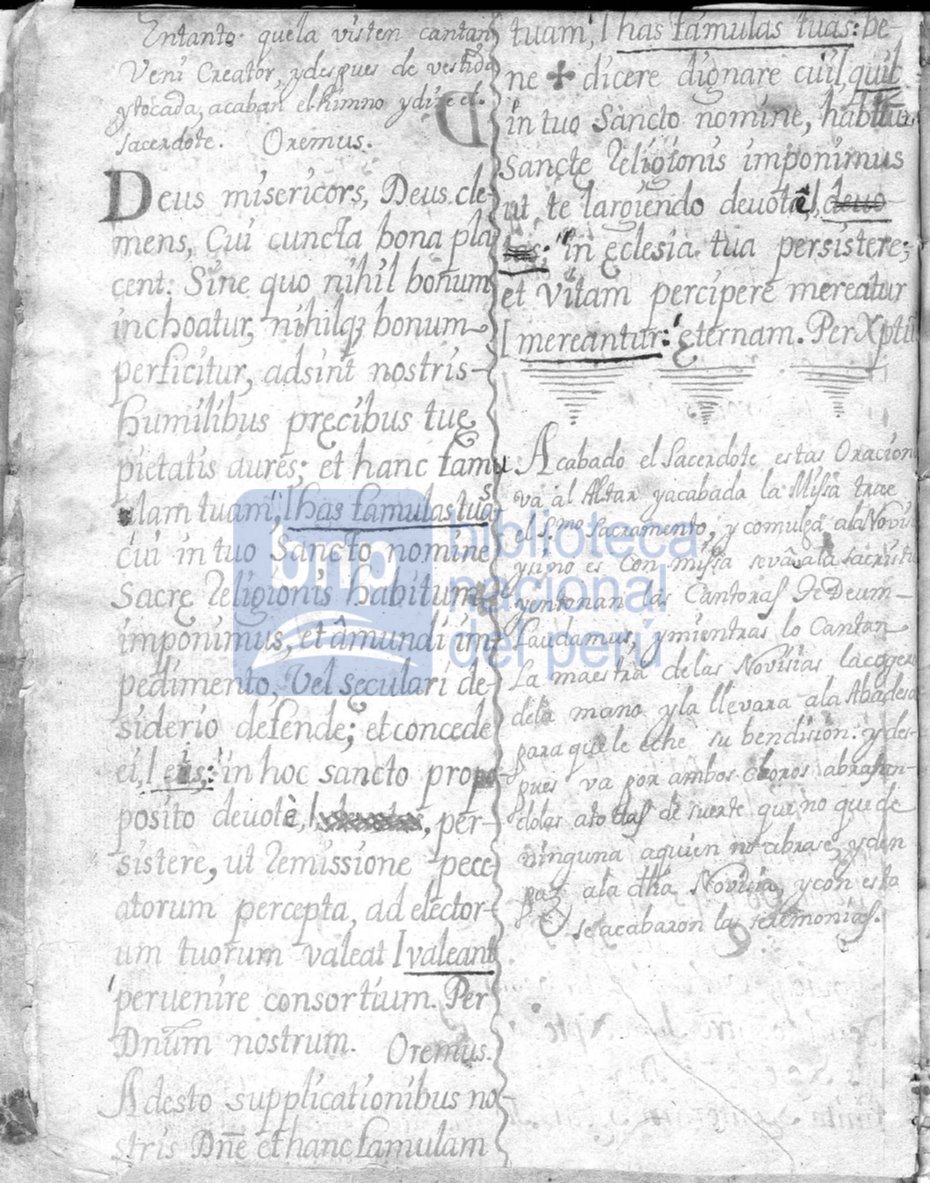 Entanto quela visten cantan
Veni Creator, ydespues de vestida
ytocada, acaban elhimno ydise el
sacerdote. Oremus.
Deus misericors, Deus cle-
mens, Cui cuncta bona pla
cent: Sine quo nihil bonum
inchoatur, nihilq3 bonum
perficitur, adsint nostris
humilibus pręcibus tuę
pietatis aures; et hanc famu
lam tuam, l has famulas tuas
cui in tuo Sancto nomine
Sacrę religionis habitum
imponimus, et âmundi im
pedimento, Vel sęculari de-
siderio defende; et concede
ei, l eis: in hoc sancto propo
posito deuotè, l, per-
sistere, ut remissione pecc
atorum percepta, ad elector-
um tuorum valeat l valeant
peruenire consortium. Per
Dnũm nostrum. Oremus.
Adesto supplicationibus no-
stris Dnẽ et hanc famulam
tuam, l has famulas tuas: be-
ne ✠ dicere dignare cui, l quib
in tuo Sancto nomine, habitum
Sanctę religionis imponimus
ut, te largiendo deuotè l, deuo
tas: in ęclesia tua persistere;
et Vitam percipere mereatur
l mereantur: ęternam. Per Xptũ
Acabado el Sacerdote estas Oracion
va al Altar yacabada la Missa trae
el S.mo Sacramento, y comulga ala Novis
ysino es con missa sevâ ala sacristia
yentonan las Cantoras TeDeum
Laudamus, ymientras lo Cantan
La maestra delas Novisias lacogera
dela mano yla llevara ala Abadesa
para que le eche su bendision: y des-
pues va por ambos choros abrasan-
dolas atodas de suerte que no quede
ninguna aquien no abrase, yden
paz ala dha Novisia, ycon esta
se acabaron las seremonias.
biblioteca
nacional
del perú
bnp